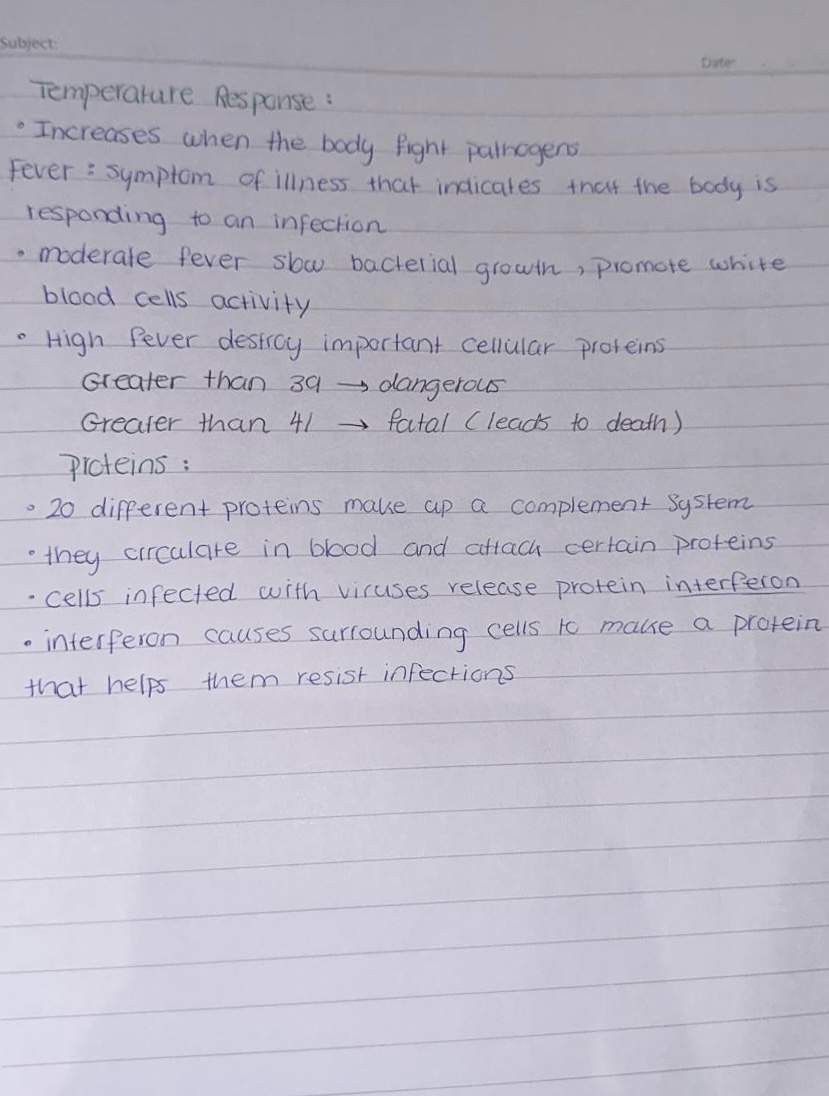 Subject:
Date:
Temperature Response :
• Increases when the body fight pathogens
Fever : symptom of illness that indicates that the body is
responding to an infection
• moderate fever slow bacterial growth , promote white
blood cells activity
• High fever destroy important cellular proteins
Greater than 39 → dangerous
Greater than 41 → fatal (leads to death)
Proteins :
• 20 different proteins make up a complement system
• they circulate in blood and attack certain proteins
• cells infected with viruses release protein interferon
• interferon causes surrounding cells to make a protein
that helps them resist infections